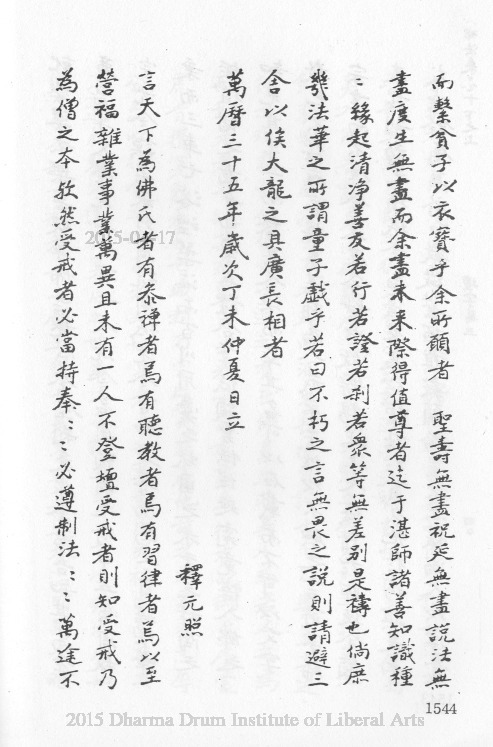 而繫貧子以衣寶乎余所願者　聖壽無盡祝延無盡說法無
盡度生無盡而余盡未來際得值尊者迄于湛師諸善知識種
：緣起清净善友若行若證若刹若衆等無差別是禱也倘庶
幾法華之所謂童子戲乎若曰不朽之言無畏之說則請避三
舍以俟大龍之具廣長相者
萬曆三十五年歲次丁未仲夏日立
釋元照
言天下為佛氏者有叅禪者焉有聽教者焉有習律者焉以至
營福雜業事業萬異且未有一人不登壇受戒者則知受戒乃
為僧之本欤然受戒者必當持奉：：必遵制法：：萬途不
1544
2015-04-17
2015 Dharma Drum Institute of Liberal Arts